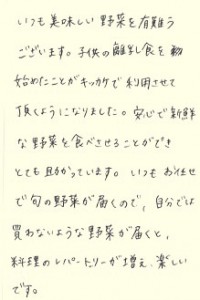 いつも美味しい野菜を有難う
ございます。子供の離乳食を
始めたことがキッカケで利用させて
頂くようになりました。安心で新鮮
な野菜を食べさせることができ
とても助かっています。いつもお任せ
で旬の野菜が届くので、自分では
買わないような野菜が届くと、
料理のレパートリーが増え、楽しい
です。